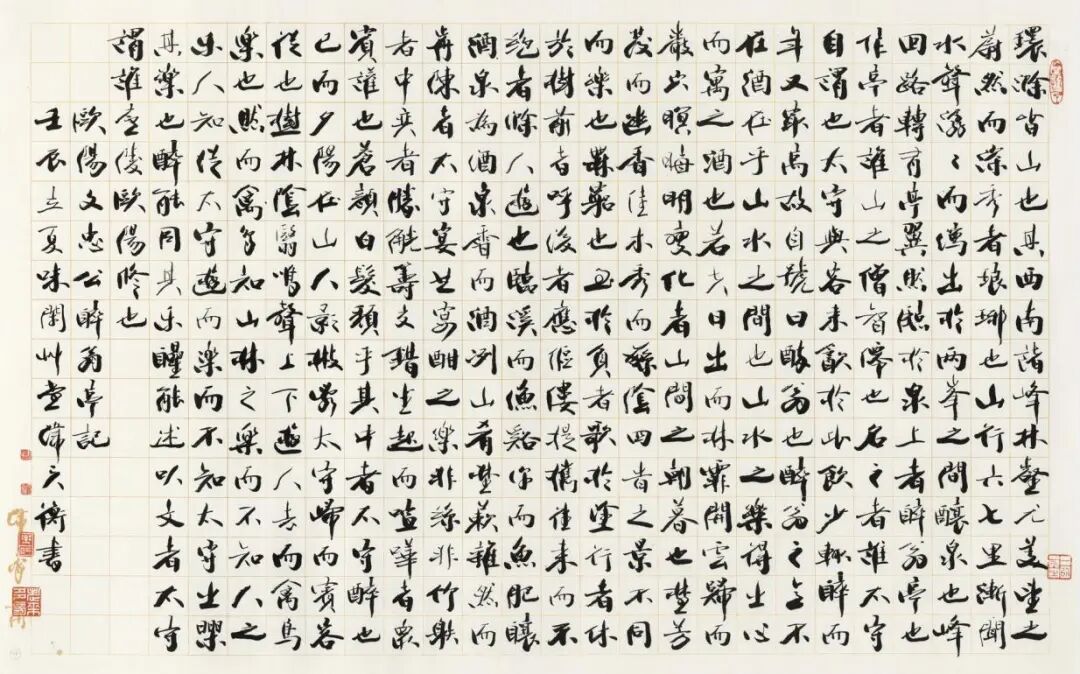 環滁皆山也其西南諸峰林壑尤美望之
蔚然而深秀者琅琊也山行六七里漸聞
水聲潺〻而瀉出於兩峯之間釀泉也峰
回路轉有亭翼然臨於泉上者醉翁亭也
作亭者誰山之僧智僊也名之者誰太守
自謂也太守與客來飲於此飲少輒醉而
年又最高故自號曰醉翁也醉翁之意不
在酒在乎山水之間也山水之樂得之心
而寓之酒也若夫日出而林霏開雲歸而
巖穴暝晦明變化者山間之朝暮也野芳
發而幽香佳木秀而繁陰四時之景不同
而樂也無窮也至於負者歌於塗行者休
於樹前者呼後者應傴僂提攜往來而不
絕者滁人遊也臨溪而漁谿深而魚肥釀
酒泉為酒泉香而酒冽山肴野蔌雜然而
前陳者太守宴也宴酣之樂非絲非竹射
者中弈者勝觥籌交錯坐起而諠譁者衆
賓讙也蒼顏白髮頹乎其中者太守醉也
已而夕陽在山人影散亂太守歸而賓客
從也樹林陰翳鳴聲上下遊人去而禽鳥
樂也然而禽鳥知山林之樂而不知人之
樂人知從太守遊而樂而不知太守之樂
其樂也醉能同其樂醒能述以文者太守
謂誰廬陵歐陽脩也
歐陽文忠公醉翁亭記
壬辰立夏味閑艸堂衡書